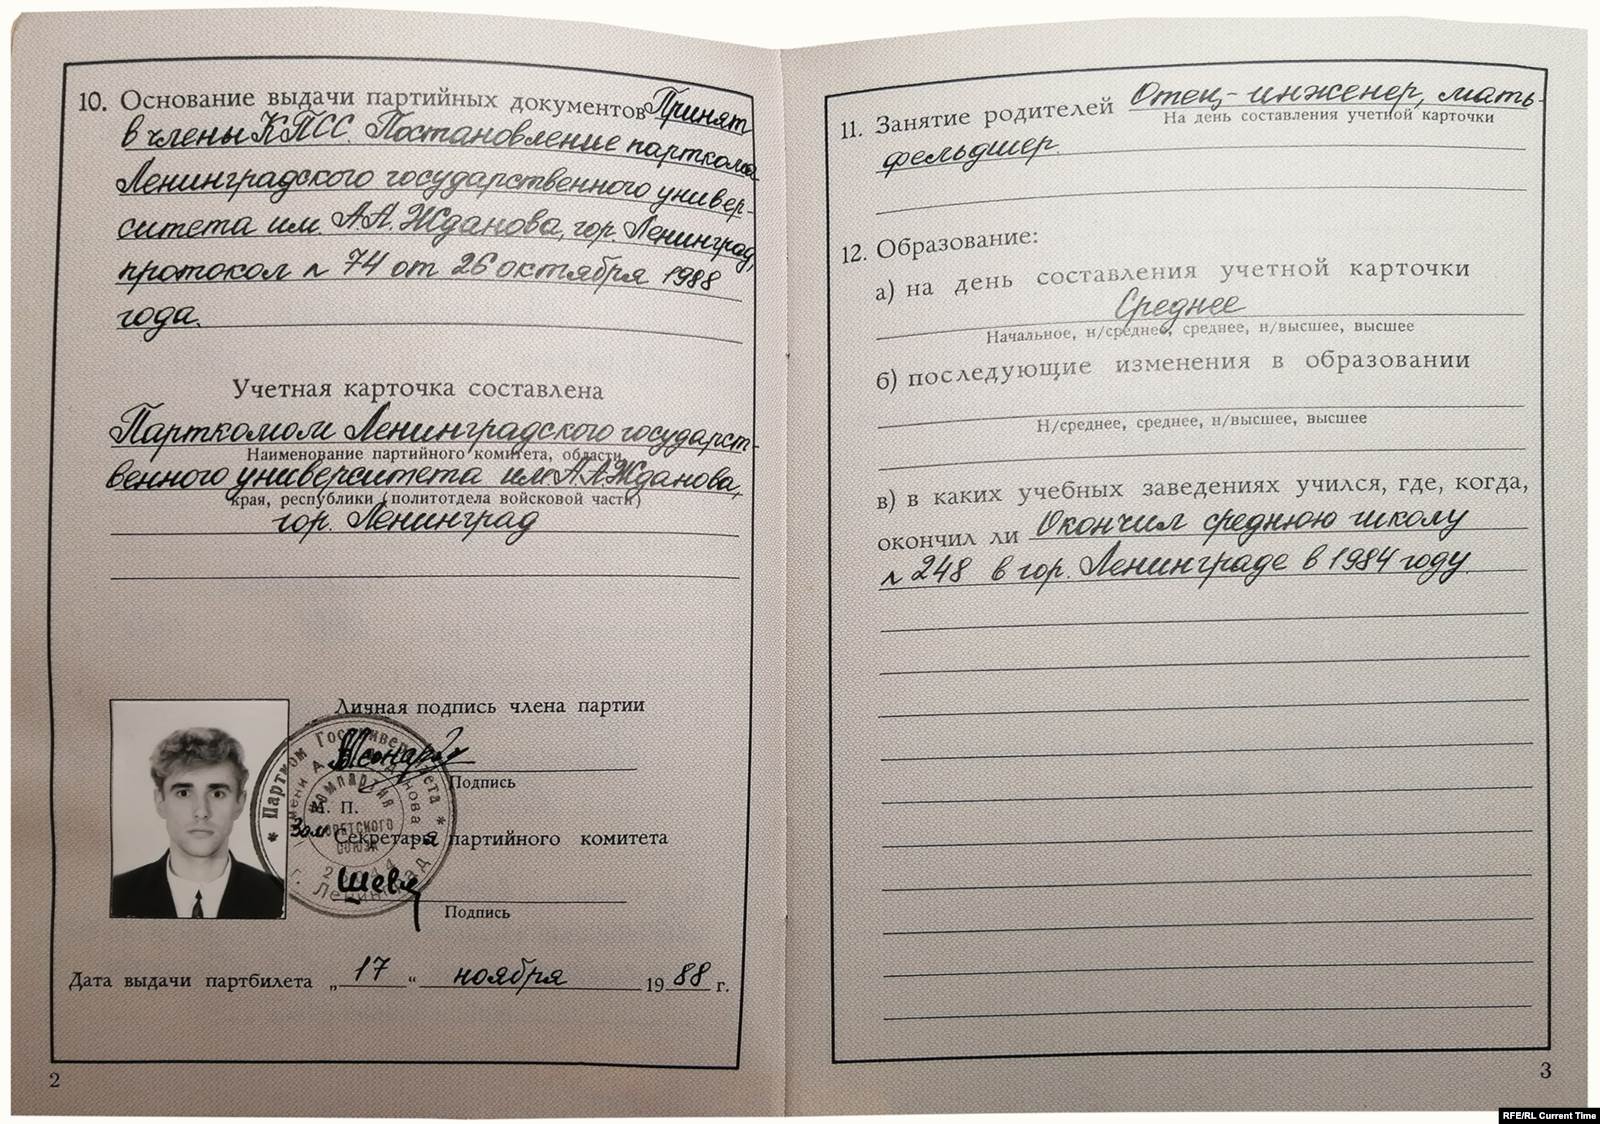 10. Основание выдачи партийных документов Принят
в члены КПСС. Постановление парткома
Ленинградского государственного универ-
ситета им. А.А. Жданова, гор. Ленинград,
протокол № 74 от 26 октября 1988
года.
Учетная карточка составлена
Парткомом Ленинградского государст-
Наименование партийного комитета, области,
венного университета им. А.А. Жданова,
края, республики (политотдела войсковой части)
гор. Ленинград
Личная подпись члена партии
Подпись
М. П.
Зам. Секретаря партийного комитета
Подпись
* Партком Госуниверситета *
имени А.А. Жданова
Компартия
Советского
Союза
г. Ленинград
Дата выдачи партбилета „17“ ноября 1988 г.
2
11. Занятие родителей Отец - инженер, мать-
На день составления учетной карточки
фельдшер.
12. Образование:
а) на день составления учетной карточки
Среднее
Начальное, н/среднее, среднее, н/высшее, высшее
б) последующие изменения в образовании
Н/среднее, среднее, н/высшее, высшее
в) в каких учебных заведениях учился, где, когда,
окончил ли Окончил среднюю школу
№ 248 в гор. Ленинграде в 1984 году.
3
RFE/RL Current Time